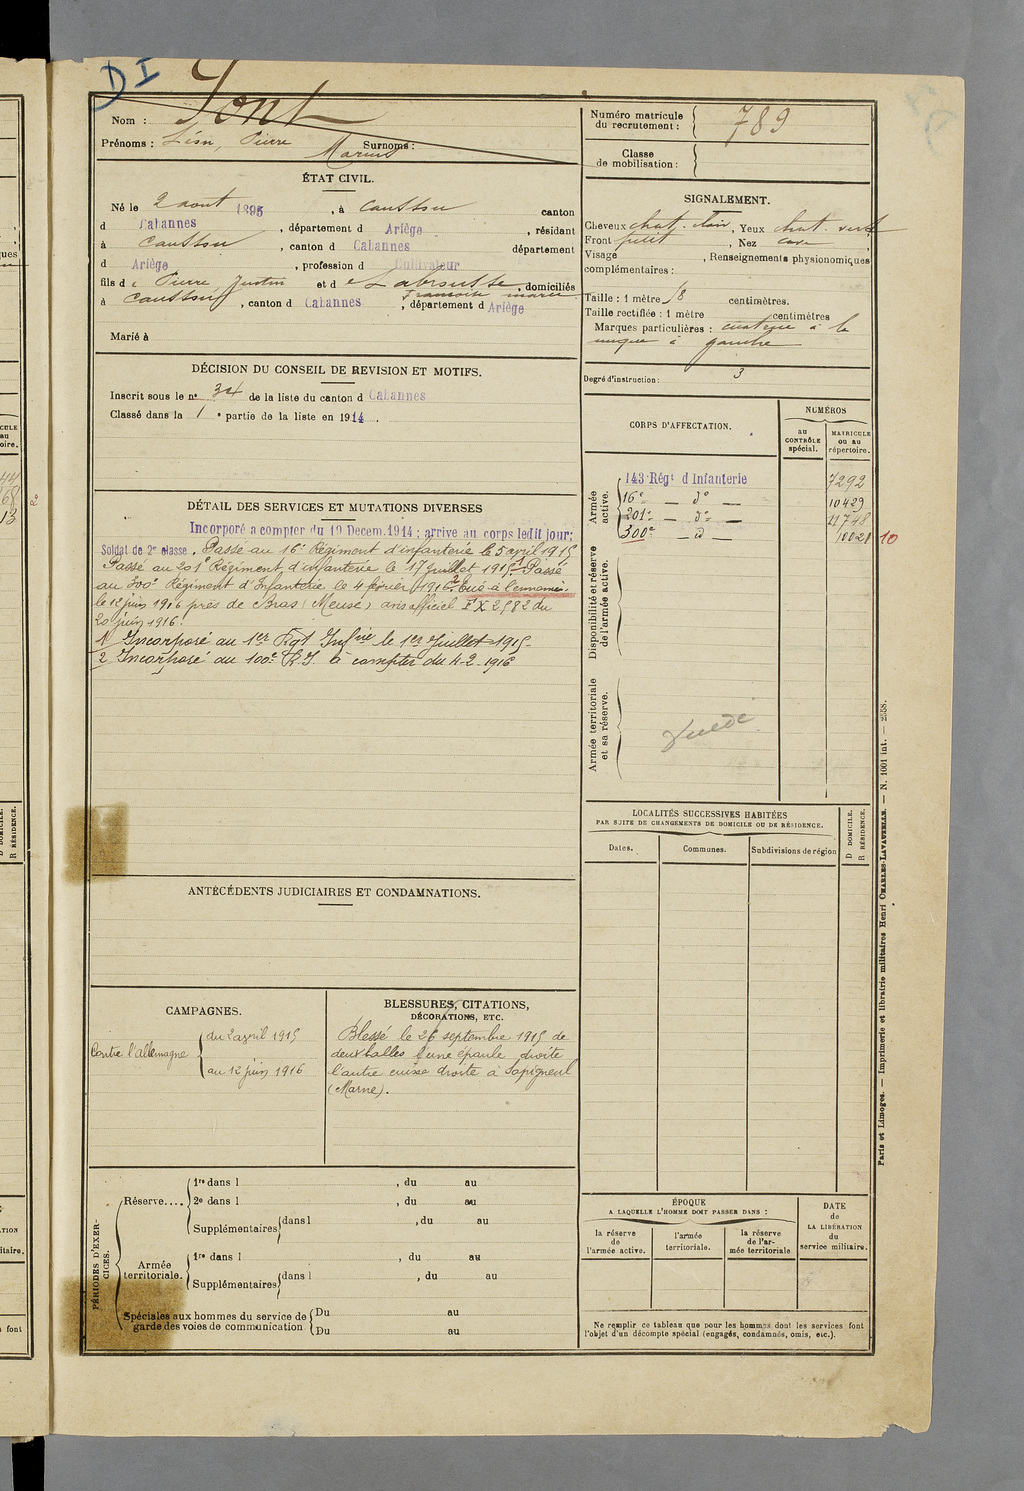 DI
Nom : Font
Prénoms : Léon, Pierre Surnoms :
Marius
ÉTAT CIVIL.
Né le 2 aout 1895, à Caussou canton
d Cabannes, département d Ariège, résidant
à Caussou, canton d Cabannes département
d Ariège, profession d Cultivateur
fils d e Pierre, Justin et d e , domiciliés
Françoise marie
à Caussou, canton d Cabannes, département d Ariège
Marié à
DÉCISION DU CONSEIL DE REVISION ET MOTIFS.
Inscrit sous le n° 34 de la liste du canton d Cabannes
Classé dans la 1 e partie de la liste en 1914.
DÉTAIL DES SERVICES ET MUTATIONS DIVERSES
Incorporé a compter du 19 Decem. 1914 ; arrive au corps ledit jour;
Soldat de 2e classe. Passé au 16e Régiment d'infanterie le 5 avril 1915
Passé au 201e Régiment d'infanterie le 17 juillet 1915 1 Passé
au 300e Régiment d'Infanterie le 4 février 1916 2 Tué à l'ennemi
le 12 juin 1916 près de Bras (Meuse) avis officiel F X 2982 du
20 juin 1916.
1 Incorporé au 1er Rgt Infrie le 1er Juillet 1915
2 Incorporé au 100e R.I. à compter du 4-2-1916
ANTÉCÉDENTS JUDICIAIRES ET CONDAMNATIONS.
CAMPAGNES.
Contre l'allemagne
du 2 avril 1915
au 12 juin 1916
BLESSURES, CITATIONS,
DÉCORATIONS, ETC.
Blessé le 26 septembre 1915 de
deux balles l'une épaule droite
l'autre cuisse droite à Sapigneul
(Marne).
PÉRIODES D'EXERCICES.
Réserve....
1re dans l , du au
2e dans l , du au
Supplémentaires dans l , du au
Armée
territoriale.
1re dans l , du au
Supplémentaires dans l , du au
Spéciales aux hommes du service de
garde des voies de communication
Du au
Du au
Numéro matricule
du recrutement : 789
Classe
de mobilisation :
SIGNALEMENT.
Cheveux chat. clair, Yeux chat. vert
Front petit, Nez cave
Visage , Renseignements physionomiques
complémentaires :
Taille : 1 mètre 58 centimètres.
Taille rectifiée : 1 mètre centimètres
Marques particulières : cicatrice à la
nuque à gauche
Degré d'instruction : 3
CORPS D'AFFECTATION.
NUMÉROS
AU CONTRÔLE spécial.
MATRICULE ou au répertoire.
Armée active.
143 Régt d Infanterie 7292
16e — do — 10429
201e — do — 11748
300e — d — 10021 10
Disponibilité et réserve de l'armée active.
Armée territoriale et sa réserve.
LOCALITÉS SUCCESSIVES HABITÉES
PAR SUITE DE CHANGEMENTS DE DOMICILE OU DE RÉSIDENCE.
Dates. Communes. Subdivisions de région
D DOMICILE.
R RÉSIDENCE.
ÉPOQUE
A LAQUELLE L'HOMME DOIT PASSER DANS :
la réserve de l'armée active.
l'armée territoriale.
la réserve de l'armée territoriale
DATE
de
LA LIBÉRATION
du
service militaire.
Ne remplir ce tableau que pour les hommes dont les services font
l'objet d'un décompte spécial (engagés, condamnés, omis, etc.).
Paris et Limoges. — Imprimerie et librairie militaires Henri CHARLES-LAVAUZELLE. — N. 1001 int. — 2558.